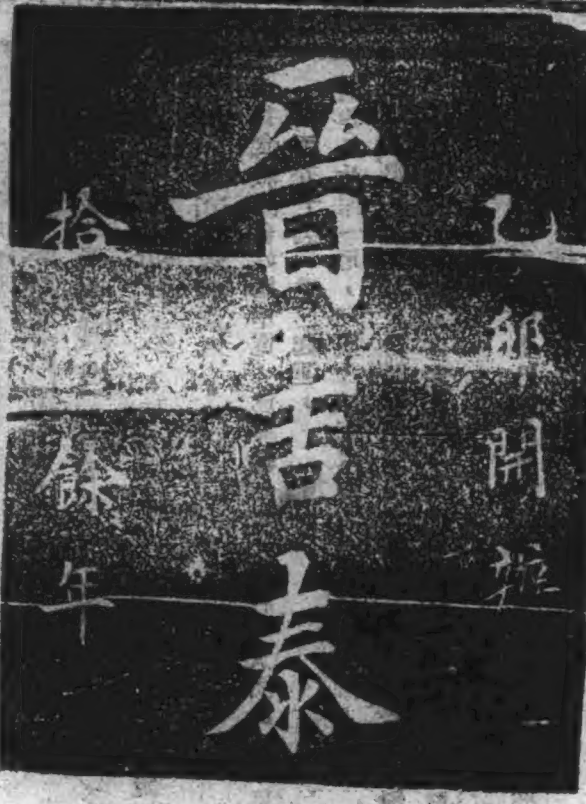 乙卯開辦
晉泰
拾餘年